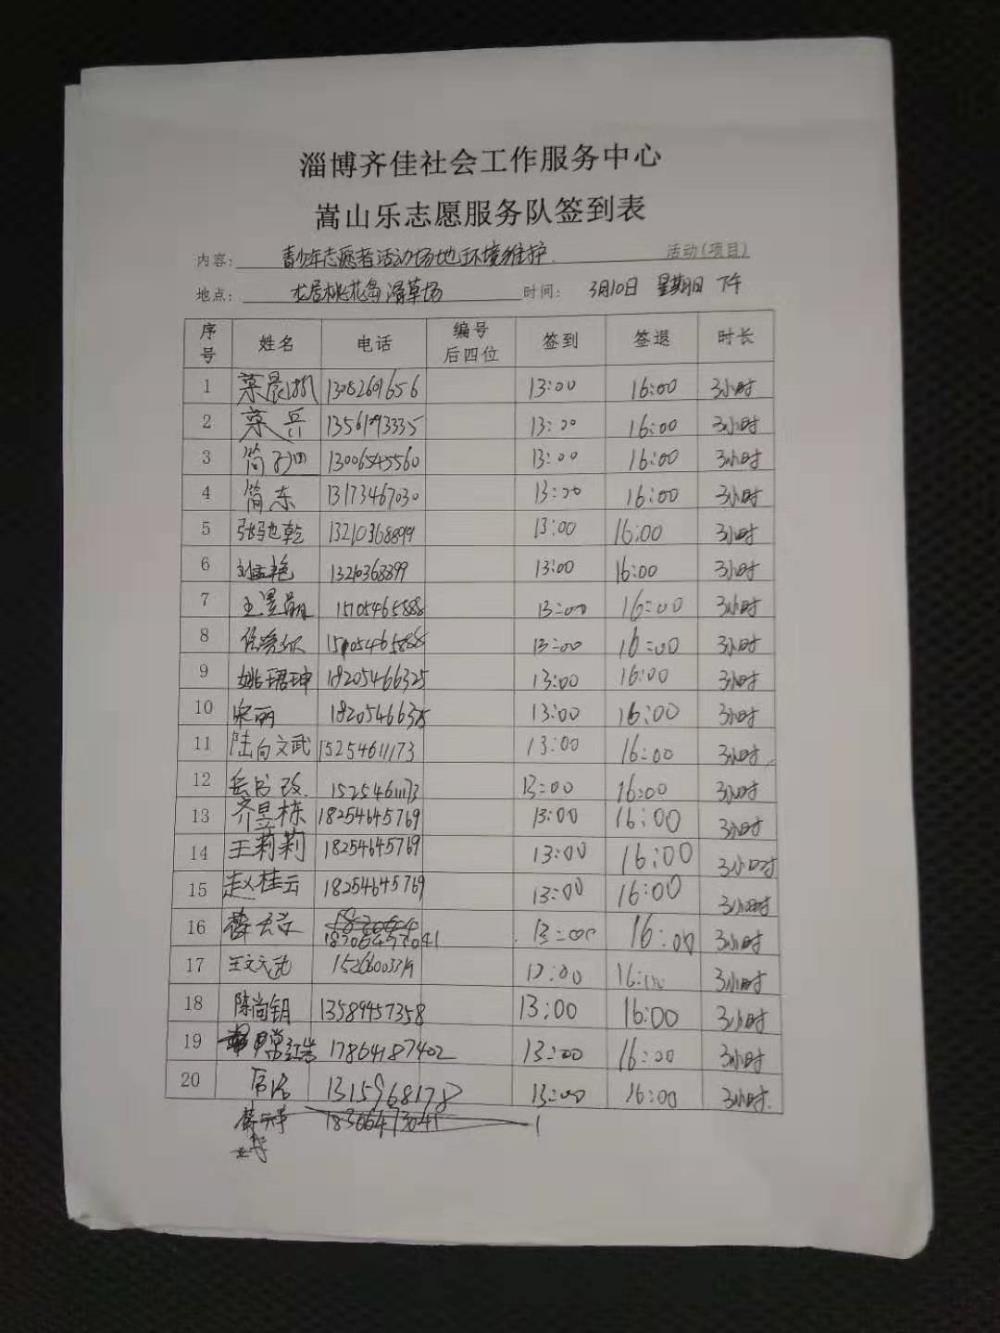 淄博齐佳社会工作服务中心
嵩山乐志愿服务队签到表
内容: 青少年志愿者活动场地环境维护 活动(项目)
地点: 龙居桃花岛滑草场 时间: 3月10日 星期日 下午
序号 姓名 电话 编号后四位 签到 签退 时长
1 13:00 16:00 3小时
2 兵 13561093335 13:00 16:00 3小时
3 简 13006545560 13:00 16:00 3小时
4 简东 13173467030 13:00 16:00 3小时
5 张驰乾 13210368899 13:00 16:00 3小时
6 13210368899 13:00 16:00 3小时
7 王昱 15105465888 13:00 16:00 3小时
8 13:00 16:00 3小时
9 姚珺珅 18205466325 13:00 16:00 3小时
10 宋丽 18205466325 13:00 16:00 3小时
11 陆向文武 15254611173 13:00 16:00 3小时
12 岳 15254611173 13:00 16:00 3小时
13 齐昱栋 18254645769 13:00 16:00 3小时
14 王莉莉 18254645769 13:00 16:00 3小时
15 赵桂云 18254645769 13:00 16:00 3小时
16 薛 13:00 16:00 3小时
17 王文 13:00 16:00 3小时
18 陈尚钥 13589457358 13:00 16:00 3小时
19 常红岩 17864187402 13:00 16:00 3小时
20 13:00 16:00 3小时
薛